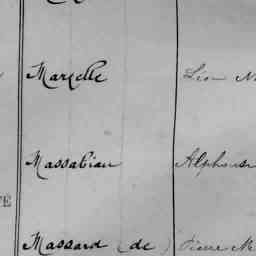 Marzelle Léon
Massabiau Alphonse
Massard (de) Pierre M